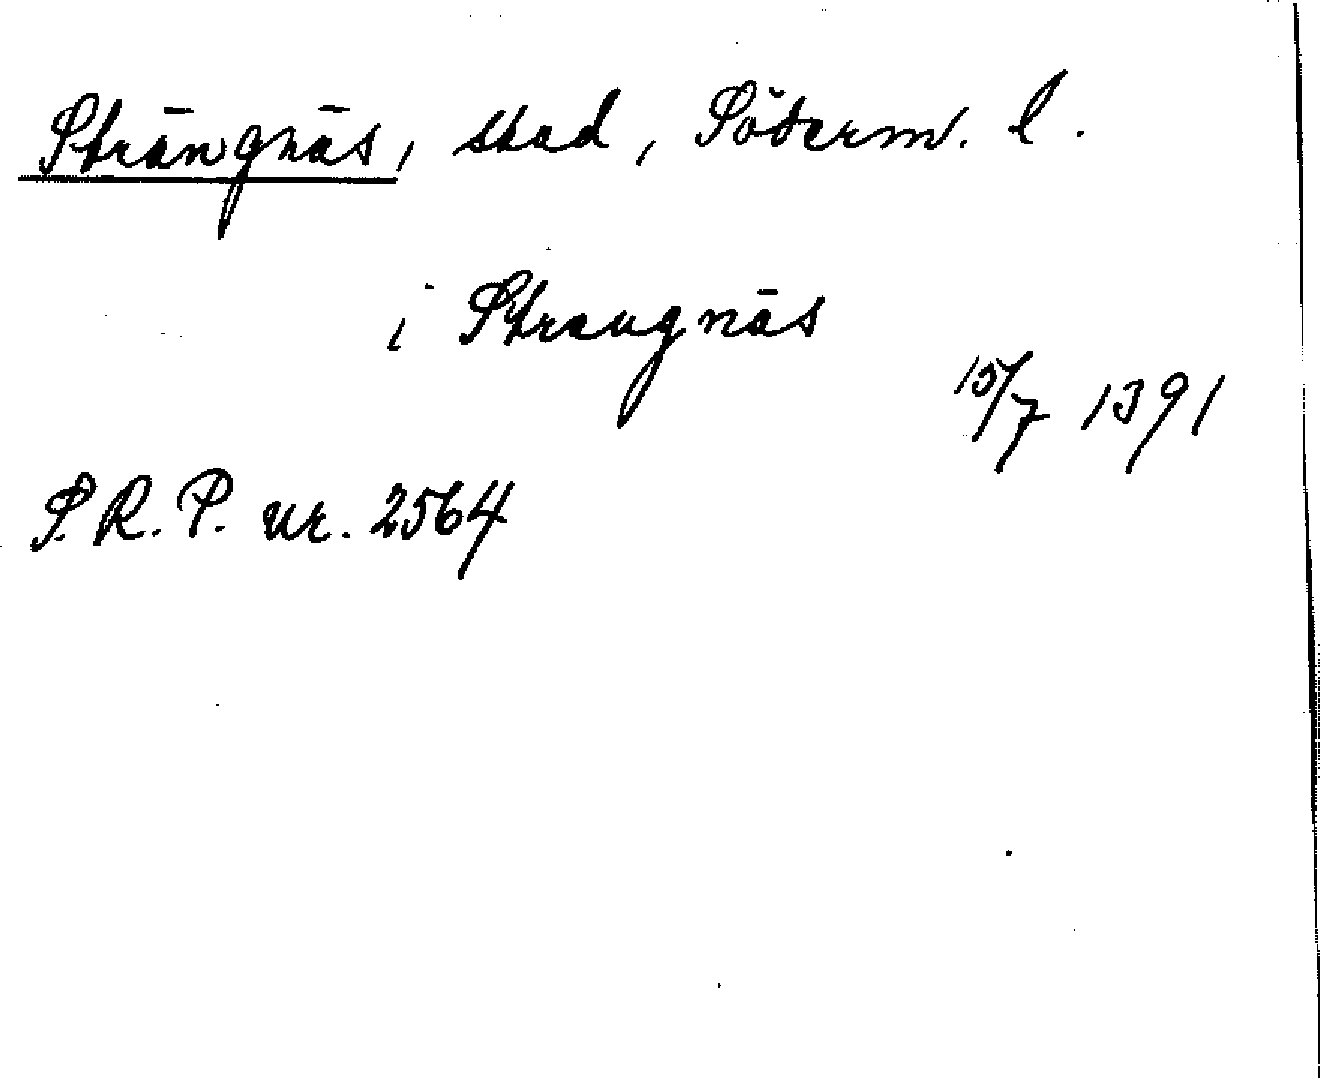 Strängnäs, stad, Söderm. l.
i Strangnäs
15/7 1391
S.R.P. nr. 2564